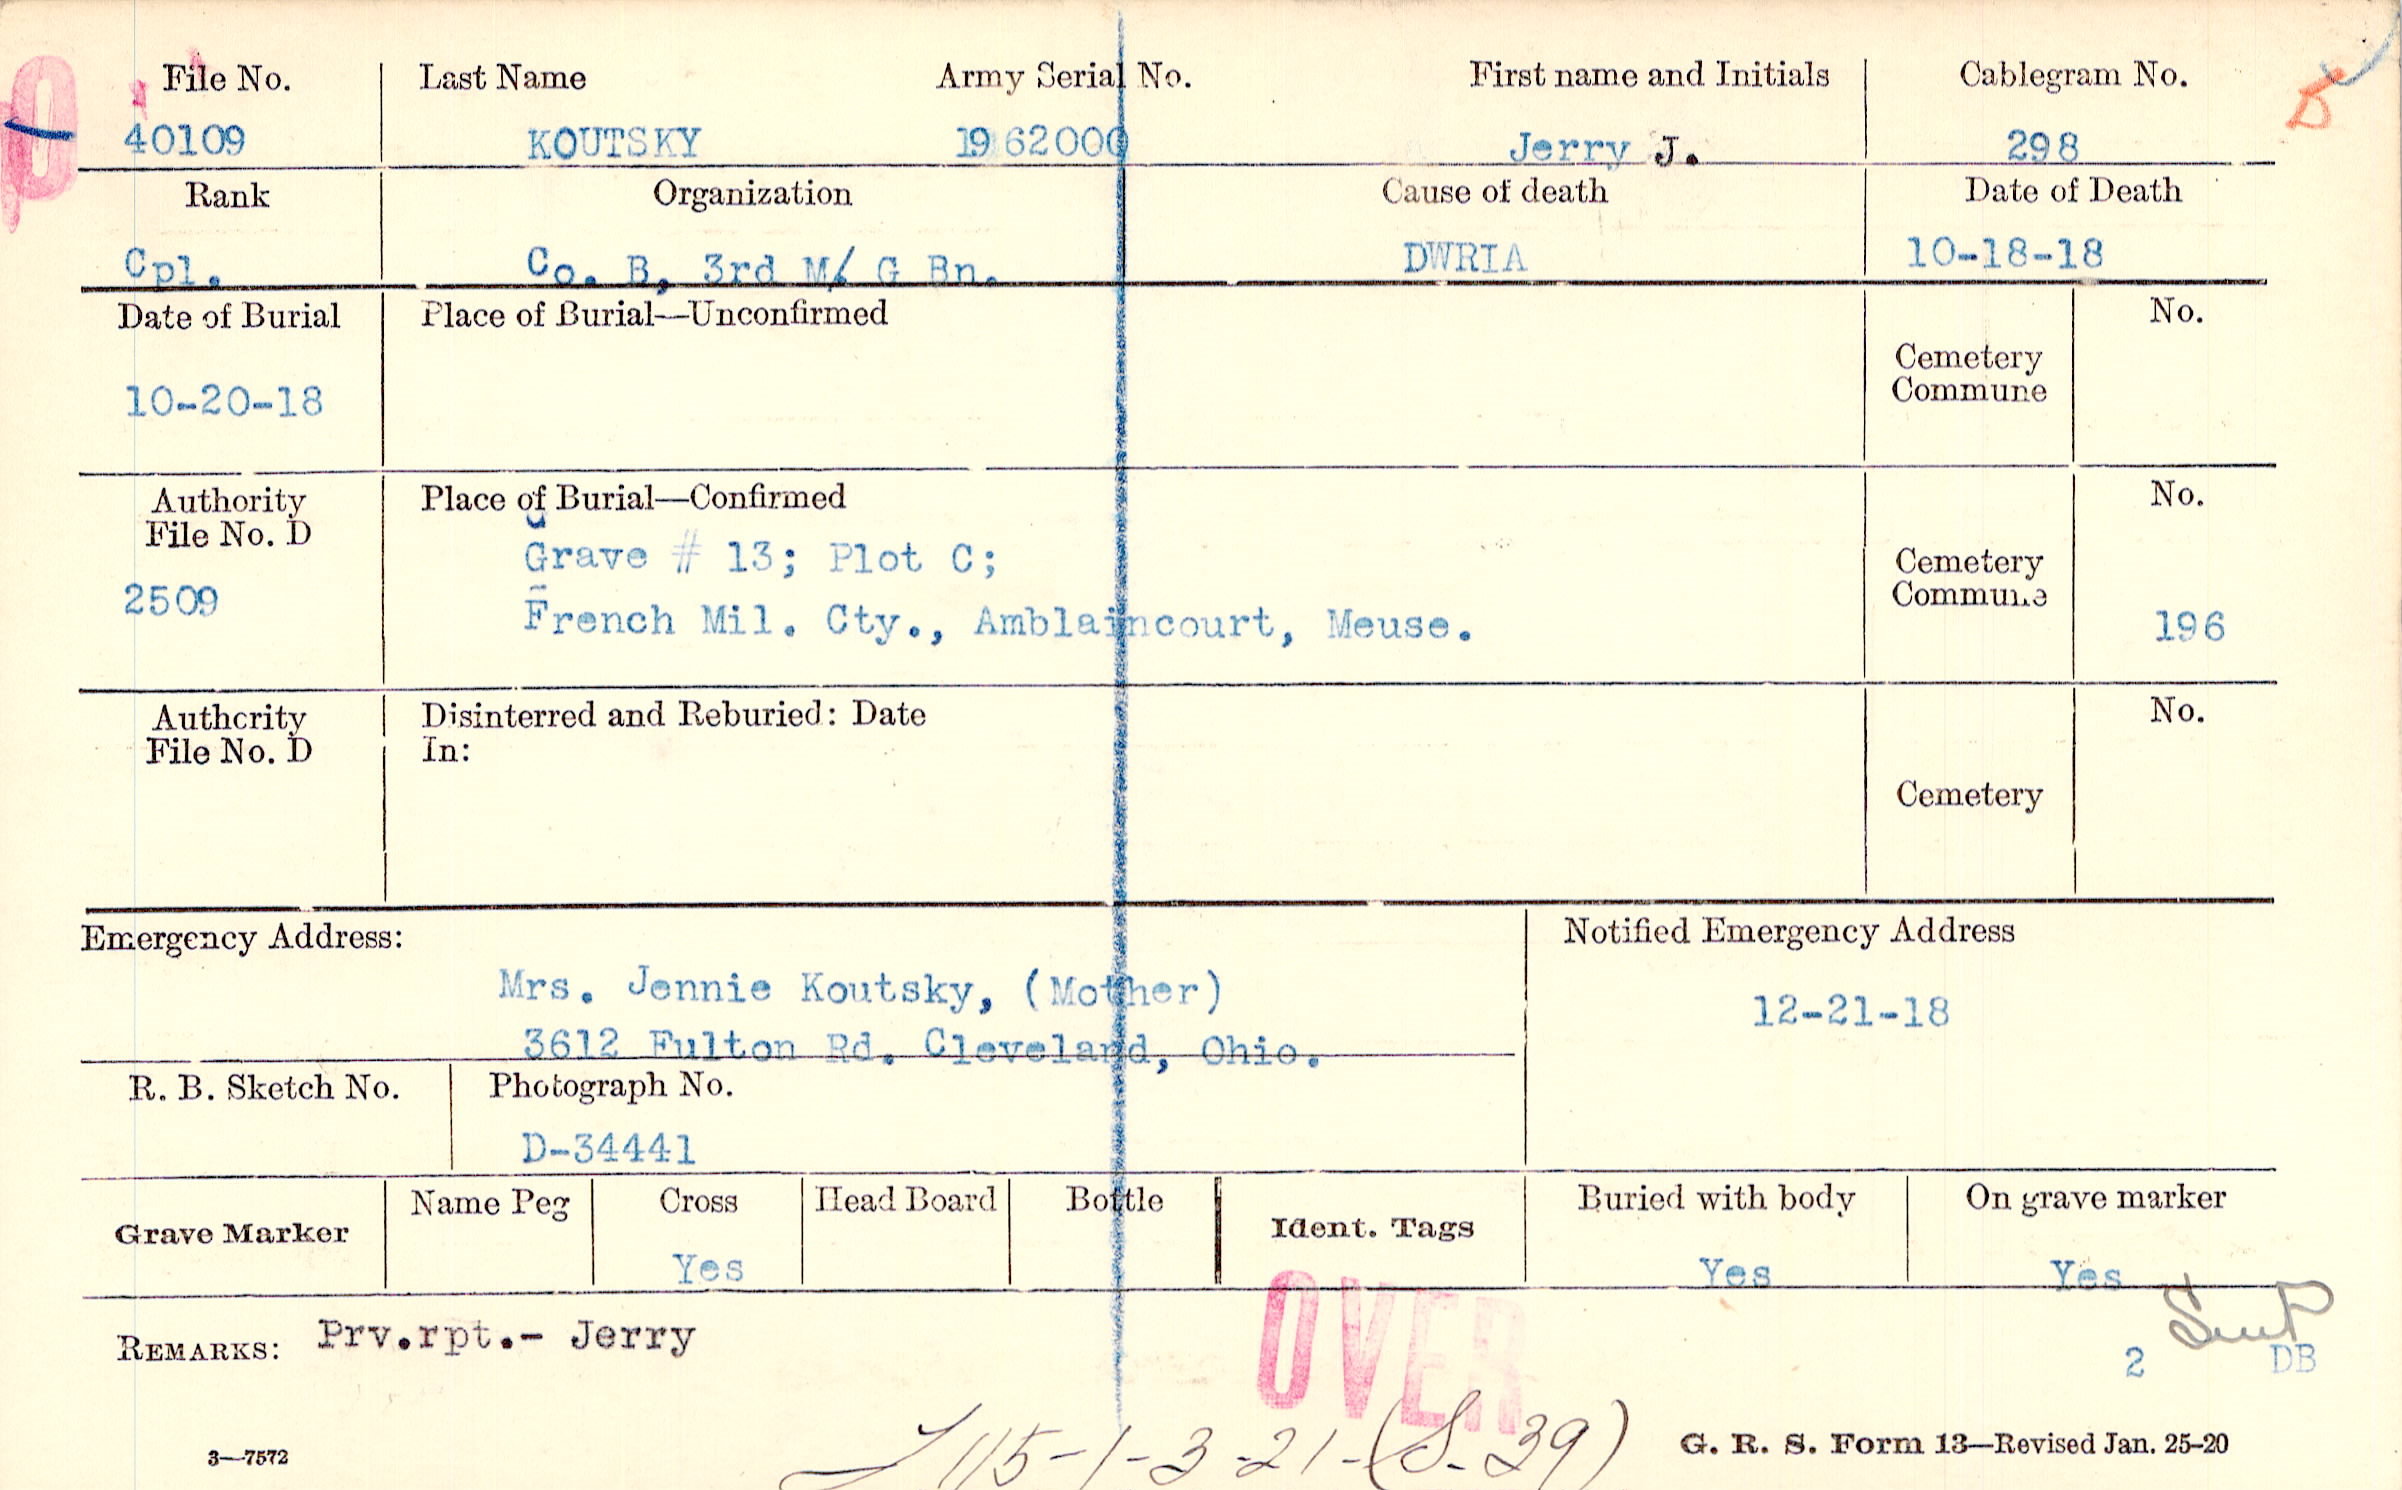 File No. Last Name Army Serial No. First name and Initials Cablegram No.
40109 KOUTSKY 1962000 Jerry J. 298
Rank Organization Cause of death Date of Death
Cpl. Co. B, 3rd M/ G Bn. DWRIA 10-18-18
Date of Burial Place of Burial—Unconfirmed No.
Cemetery
Commune
10-20-18
Authority Place of Burial—Confirmed No.
File No. D
Grave # 13; Plot C; Cemetery
2509 Commune
French Mil. Cty., Amblaincourt, Meuse. 196
Authority Disinterred and Reburied: Date No.
File No. D In:
Cemetery
Emergency Address: Notified Emergency Address
Mrs. Jennie Koutsky, (Mother) 12-21-18
3612 Fulton Rd. Cleveland, Ohio.
R. B. Sketch No. Photograph No.
D-34441
Grave Marker Name Peg Cross Head Board Bottle Ident. Tags Buried with body On grave marker
Yes Yes Yes
OVER
REMARKS: Prv.rpt.- Jerry
2 DB
115-1-3-21-(S-39)
3—7572 G. R. S. Form 13—Revised Jan. 25-20